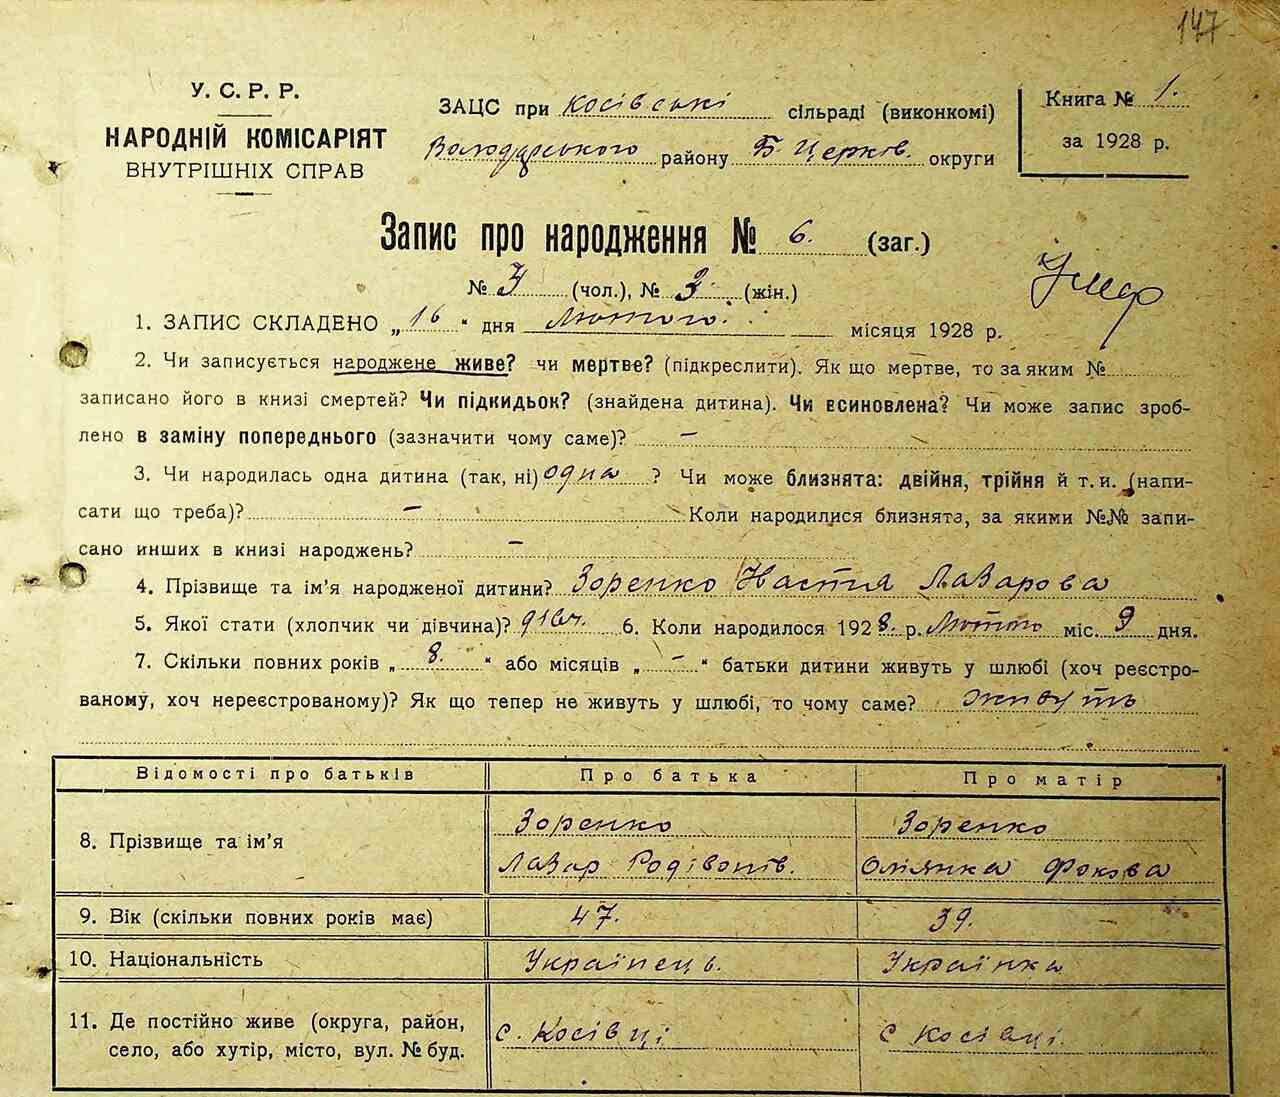 147
У. С. Р. Р.
НАРОДНІЙ КОМІСАРІЯТ
ВНУТРІШНІХ СПРАВ
ЗАЦС при косівські сільраді (виконкомі)
Володарського району Б. Церків. округи
Книга № 1.
за 1928 р.
Запис про народження № 6. (заг.)
№ 3 (чол.), № 3 (жін.)
1. ЗАПИС СКЛАДЕНО „16“ дня Лютого. місяця 1928 р.
2. Чи записується народжене живе? чи мертве? (підкреслити). Як що мертве, то за яким №
записано його в книзі смертей? Чи підкидьок? (знайдена дитина). Чи всиновлена? Чи може запис зроб-
лено в заміну попереднього (зазначити чому саме)? –
3. Чи народилась одна дитина (так, ні) одна ? Чи може близнята: двійня, трійня й т. и. (напи-
сати що треба)? – Коли народилися близнята, за якими №№ запи-
сано инших в книзі народжень? –
4. Прізвище та ім'я народженої дитини? Зоренко Настя Лазарова
5. Якої стати (хлопчик чи дівчина)? дівч. 6. Коли народилося 1928. р. Лютого міс. 9 дня.
7. Скільки повних років „ 8. “ або місяців „ – “ батьки дитини живуть у шлюбі (хоч реєстро-
ваному, хоч нереєстрованому)? Як що тепер не живуть у шлюбі, то чому саме? живуть
Відомості про батьків Про батька Про матір
8. Прізвище та ім'я
Зоренко Зоренко
Лазар Родівонів. Олянка Фокова
9. Вік (скільки повних років має) 47. 39.
10. Національність Українець. Українка
11. Де постійно живе (округа, район,
село, або хутір, місто, вул. № буд.
с. Косівці с Косівці.